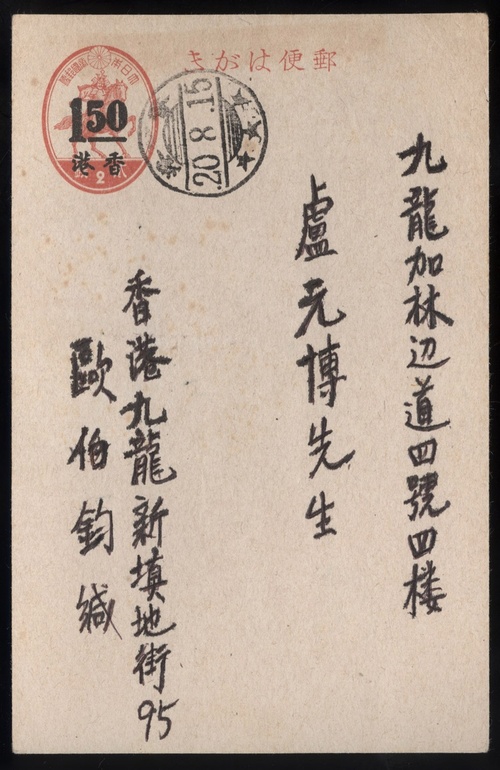 郵便はがき
大日本帝國郵便
1.50
香港
貳 2 錢
20.8.15
九龍加林辺道四號四楼
盧元博先生
香港九龍新填地街95
歐伯鈞缄